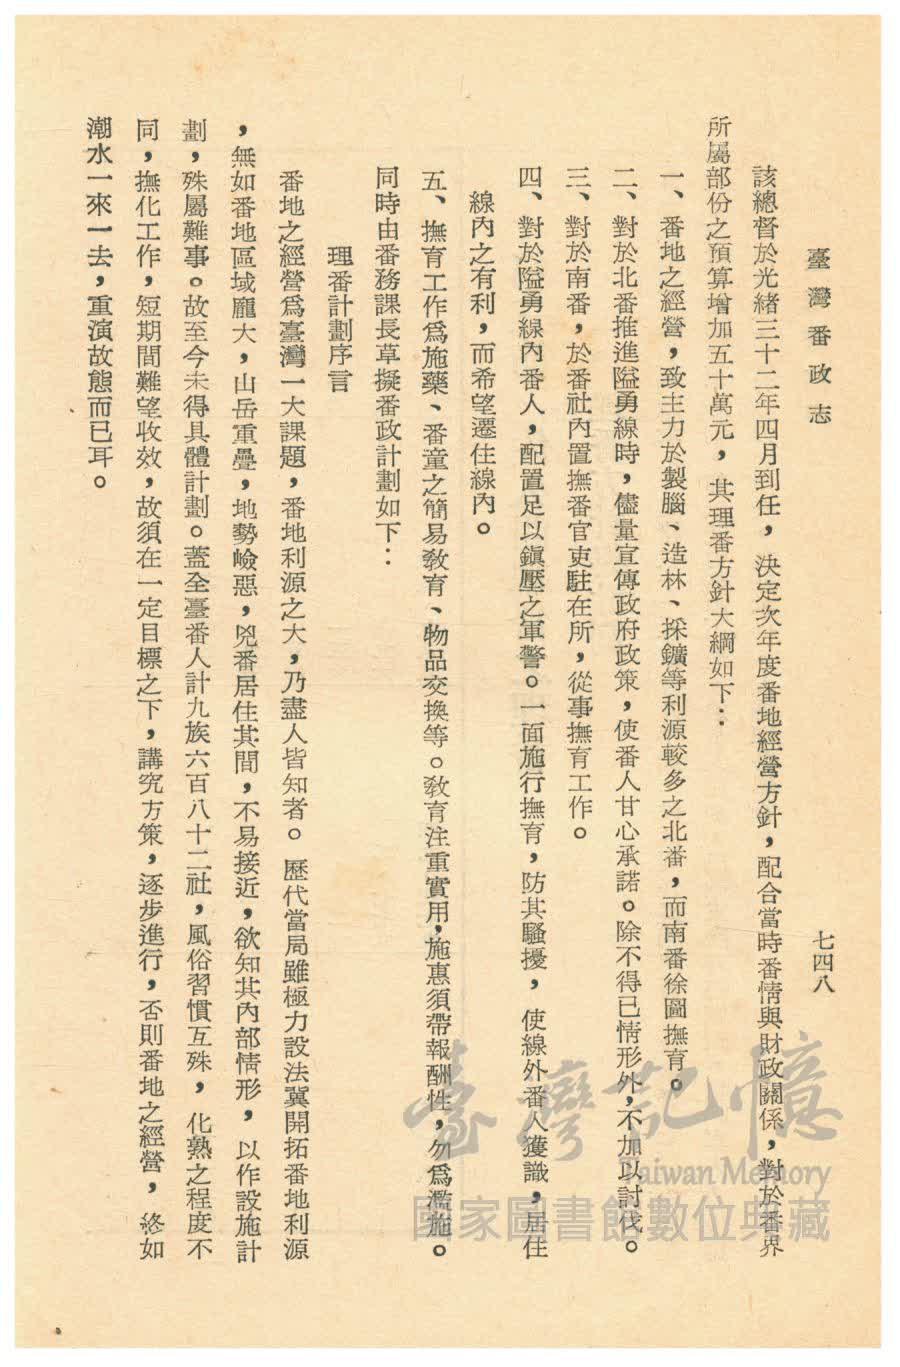 臺灣番政志
七四八
該總督於光緒三十二年四月到任，決定次年度番地經營方針，配合當時番情與財政關係，對於番界
所屬部份之預算增加五十萬元，其理番方針大綱如下：
一、番地之經營，致主力於製腦、造林、採鑛等利源較多之北番，而南番徐圖撫育。
二、對於北番推進隘勇線時，儘量宣傳政府政策，使番人甘心承諾。除不得已情形外，不加以討伐。
三、對於南番，於番社內置撫番官吏駐在所，從事撫育工作。
四、對於隘勇線內番人，配置足以鎭壓之軍警。一面施行撫育，防其騷擾，使線外番人獲識，居住
線內之有利，而希望遷住線內。
五、撫育工作爲施藥、番童之簡易教育、物品交換等。教育注重實用，施惠須帶報酬性，勿爲濫施。
同時由番務課長草擬番政計劃如下：
理番計劃序言
番地之經營爲臺灣一大課題，番地利源之大，乃盡人皆知者。歷代當局雖極力設法冀開拓番地利源
，無如番地區域龐大，山岳重疊，地勢嶮惡，兇番居住其間，不易接近，欲知其內部情形，以作設施計
劃，殊屬難事。故至今未得具體計劃。蓋全臺番人計九族六百八十二社，風俗習慣互殊，化熟之程度不
同，撫化工作，短期間難望收效，故須在一定目標之下，講究方策，逐步進行，否則番地之經營，終如
潮水一來一去，重演故態而已耳。
臺灣記憶
Taiwan Memory
國家圖書館數位典藏